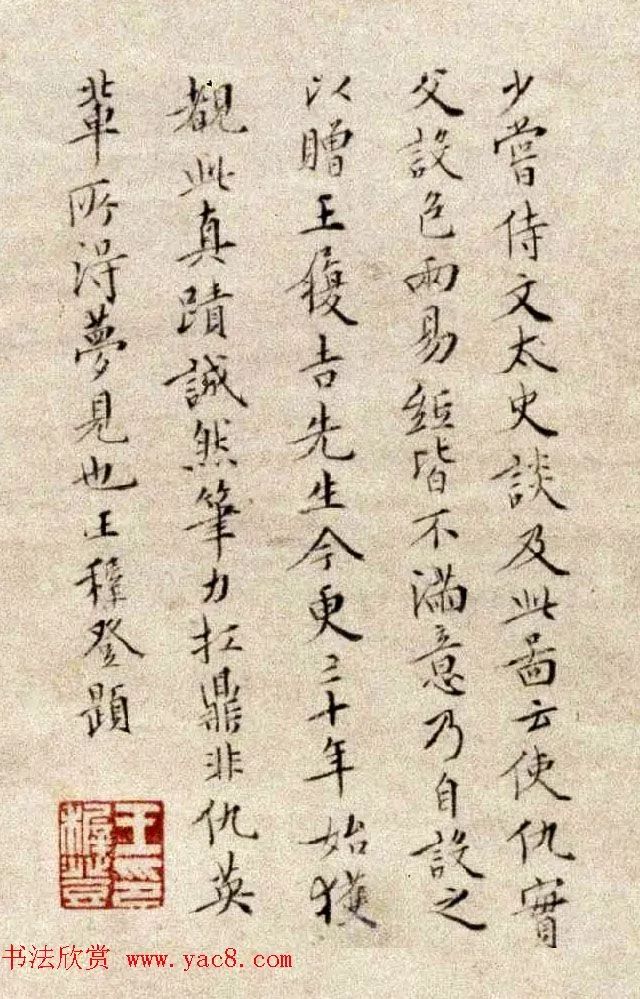 少嘗侍文太史談及此啚云使仇實
父設色兩易絹皆不滿意乃自設之
以贈王履吉先生今更二十年始獲
觀此真蹟誠然筆力扛鼎非仇英
輩所得夢見也王穉登題
王印穉登
书法欣赏 www.yac8.com